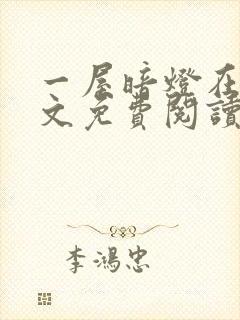 一屋暗燈在
文免費閱讀
李鴻忠